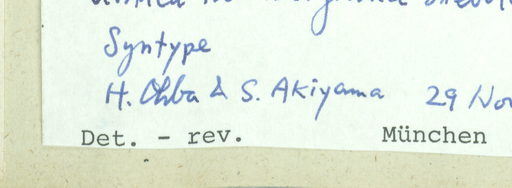 Syntype
H. Ohba & S. Akiyama 29 Nov
Det. - rev. München